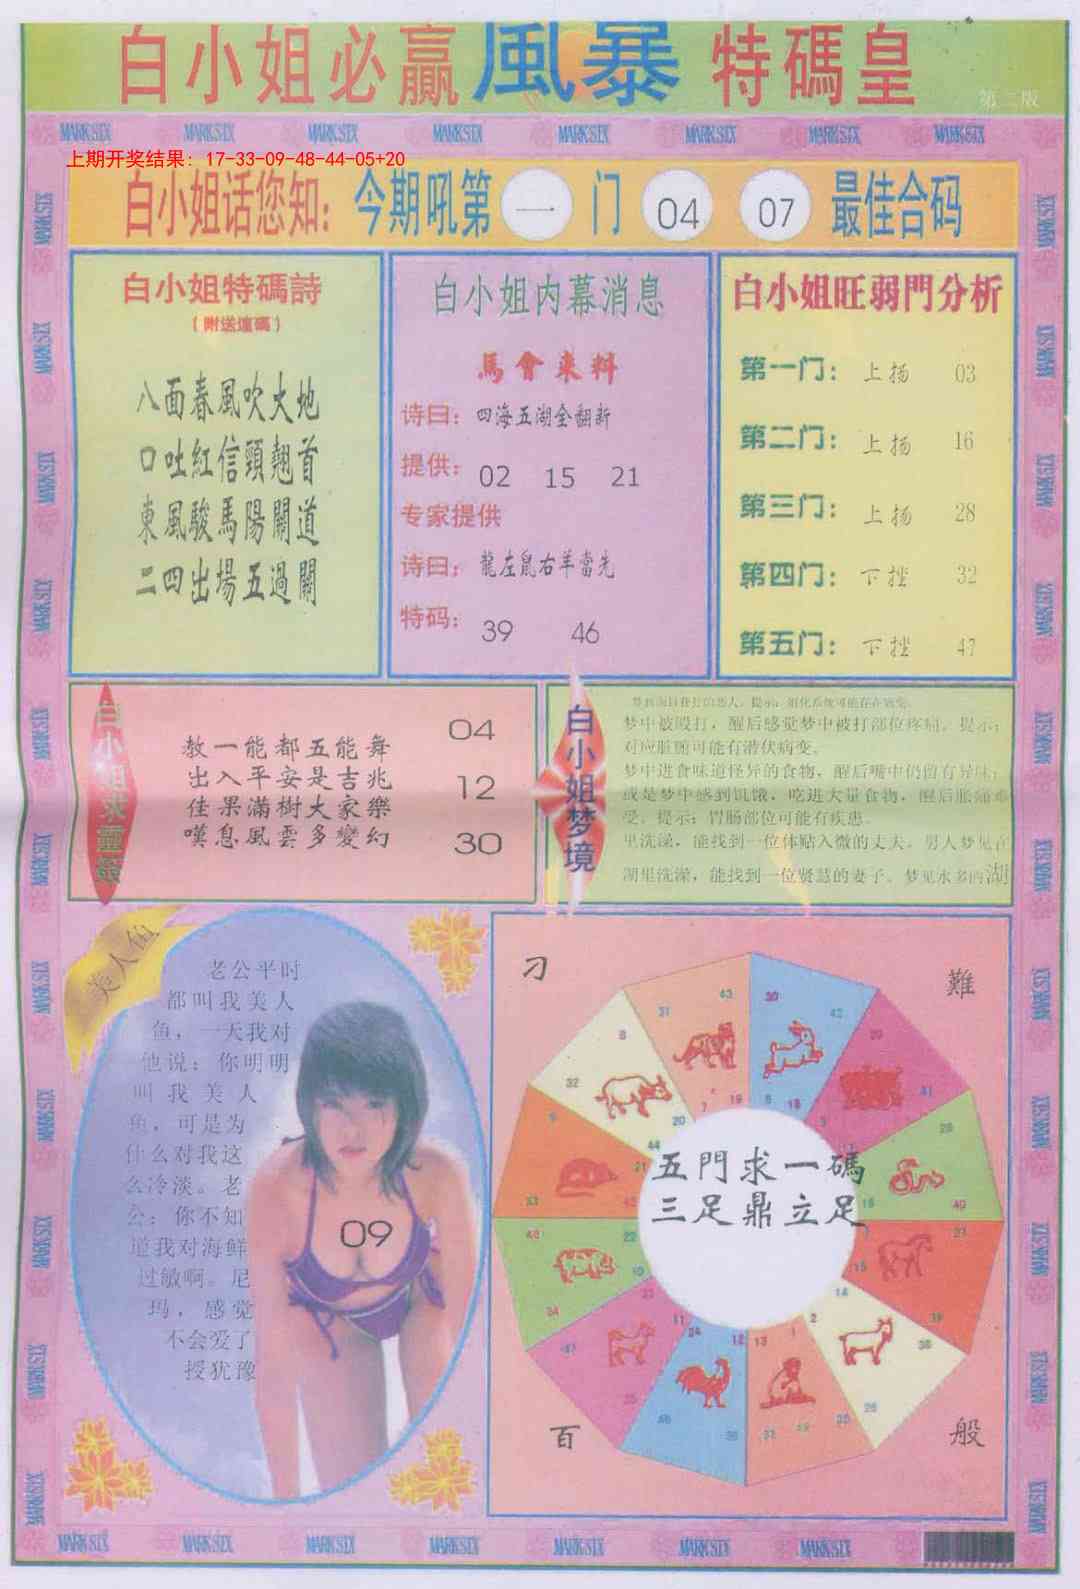 白小姐必贏風暴特碼皇
第二版
MARK SIX MARK SIX MARK SIX MARK SIX MARK SIX MARK SIX MARK SIX MARK SIX
上期开奖结果: 17-33-09-48-44-05+20
白小姐话您知: 今期吼第一门 04 07 最佳合码
白小姐特碼詩
八面春風吹大地
口吐紅信頸翹首
東風駿馬陽關道
二四出場五過關
白小姐内幕消息
馬會来料
诗曰: 四海五湖全翻新
提供: 02 15 21
专家提供
诗曰: 龍左鼠右羊當先
特码: 39 46
白小姐旺弱門分析
第一门: 上扬 03
第二门: 上扬 16
第三门: 上扬 28
第四门: 下挫 32
第五门: 下挫 47
白小姐求靈簽
教一能都五能舞
出入平安是吉兆
佳果滿樹大家樂
嘆息風雲多變幻
04
12
30
白小姐梦境
梦中被殴打，醒后感觉梦中被打部位疼痛。提示:
对应脏腑可能有潜伏病变。
梦中进食味道怪异的食物，醒后嘴中仍留有异味;
或是梦中感到饥饿，吃进大量食物，醒后胀痛难
受。提示: 胃肠部位可能有疾患。
里洗澡，能找到一位体贴入微的丈夫。男人梦见在
湖里洗澡，能找到一位贤慧的妻子。梦见水多的湖
美人鱼
老公平时
都叫我美人
鱼，一天我对
他说: 你明明
叫我美人
鱼，可是为
什么对我这
么冷淡。老
公: 你不知
道我对海鲜
过敏啊。尼
玛，感觉
不会爱了
授犹豫
09
刁
難
五門求一碼
三足鼎立足
百
般
MARK SIX MARK SIX MARK SIX MARK SIX MARK SIX MARK SIX MARK SIX